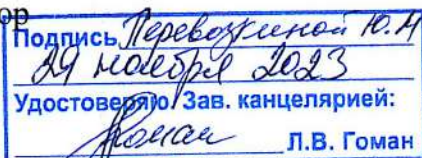 ор
Подпись Перевозкиной Ю.М
29 ноября 2023
Удостоверяю Зав. канцелярией:
Гоман Л.В. Гоман